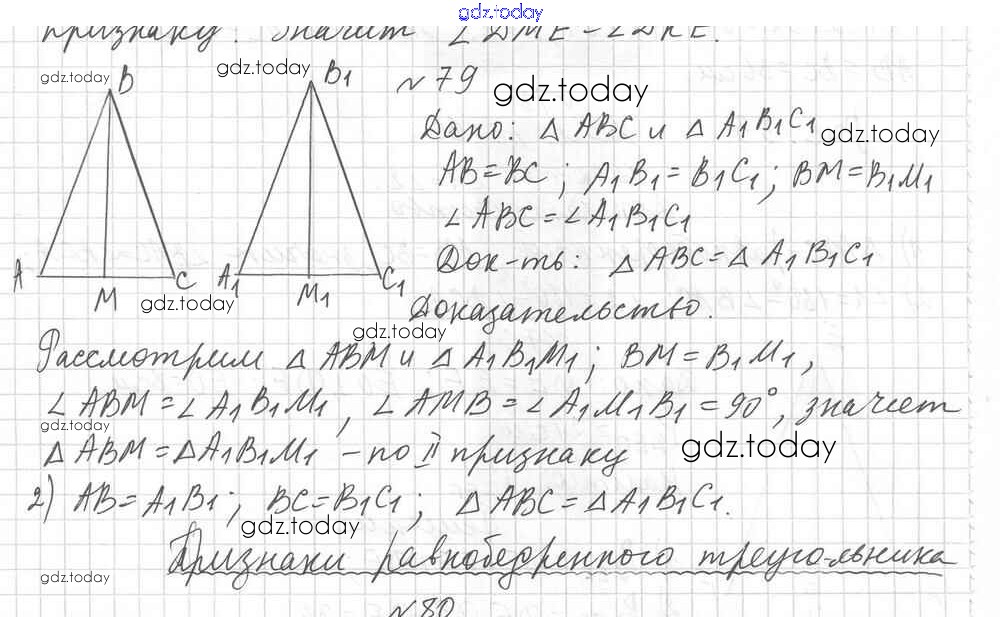 gdz.today
признаку. Значит ∠DME = ∠DKE.
gdz.today
gdz.today
B
B1
N 79
gdz.today
Дано: △ ABC и △ A1B1C1
gdz.today
AB=BC; A1B1=B1C1; BM=B1M1
∠ABC=∠A1B1C1
Док-ть: △ABC=△A1B1C1
A
M
C
A1
M1
C1
gdz.today
Доказательство.
gdz.today
Рассмотрим △ ABM и △ A1B1M1; BM=B1M1,
∠ABM=∠A1B1M1, ∠AMB=∠A1M1B1=90°, значит
gdz.today
gdz.today
△ABM=△A1B1M1 – по II признаку
2) AB=A1B1; BC=B1C1; △ABC=△A1B1C1.
gdz.today
Признаки равнобедренного треугольника
gdz.today
N 80